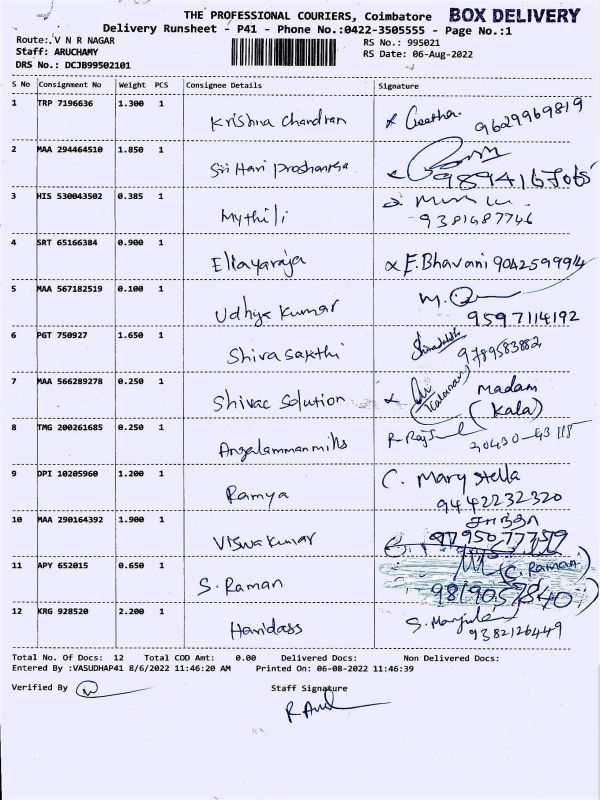 THE PROFESSIONAL COURIERS, Coimbatore BOX DELIVERY
Delivery Runsheet - P41 - Phone No.:0422-3505555 - Page No.:1
Route:.V N R NAGAR RS No.: 995021
Staff: ARUCHAMY RS Date: 06-Aug-2022
DRS No.: DCJB99502101
S No Consignment No Weight PCS Consignee Details Signature
1 TRP 7196636 1.300 1 Krishna Chandran Geetha. 9629969819
2 MAA 294464510 1.850 1 Sri Hari Proshantha
3 HIS 530043502 0.385 1 Mythili
9381687746
4 SRT 65166384 0.900 1 Ellayaraja E.Bhavani 9042599914
5 MAA 567182519 0.100 1 Udhya Kumar M.
9597114192
6 PGT 750927 1.650 1 Shiva Sakthi
9789583882
7 MAA 566289278 0.250 1 Shivac Solution Madam
(Kala)
8 TMG 200261685 0.250 1 Angalamman mills
9 DPI 10205960 1.200 1 Ramya C. Mary Stella
9442232320
10 MAA 290164392 1.900 1 Viswa Kumar
11 APY 652015 0.650 1 S. Raman (C. Raman)
12 KRG 928520 2.200 1 Haridass S. Manjula
9382126449
Total No. Of Docs: 12 Total COD Amt: 0.00 Delivered Docs: Non Delivered Docs:
Entered By :VASUDHAP41 8/6/2022 11:46:20 AM Printed On: 06-08-2022 11:46:39
Verified By Staff Signature